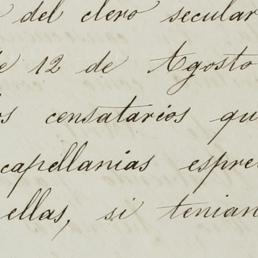 del clero secular
de 12 de Agosto
censatarios qu
capellanias espre
ellas, si tenian